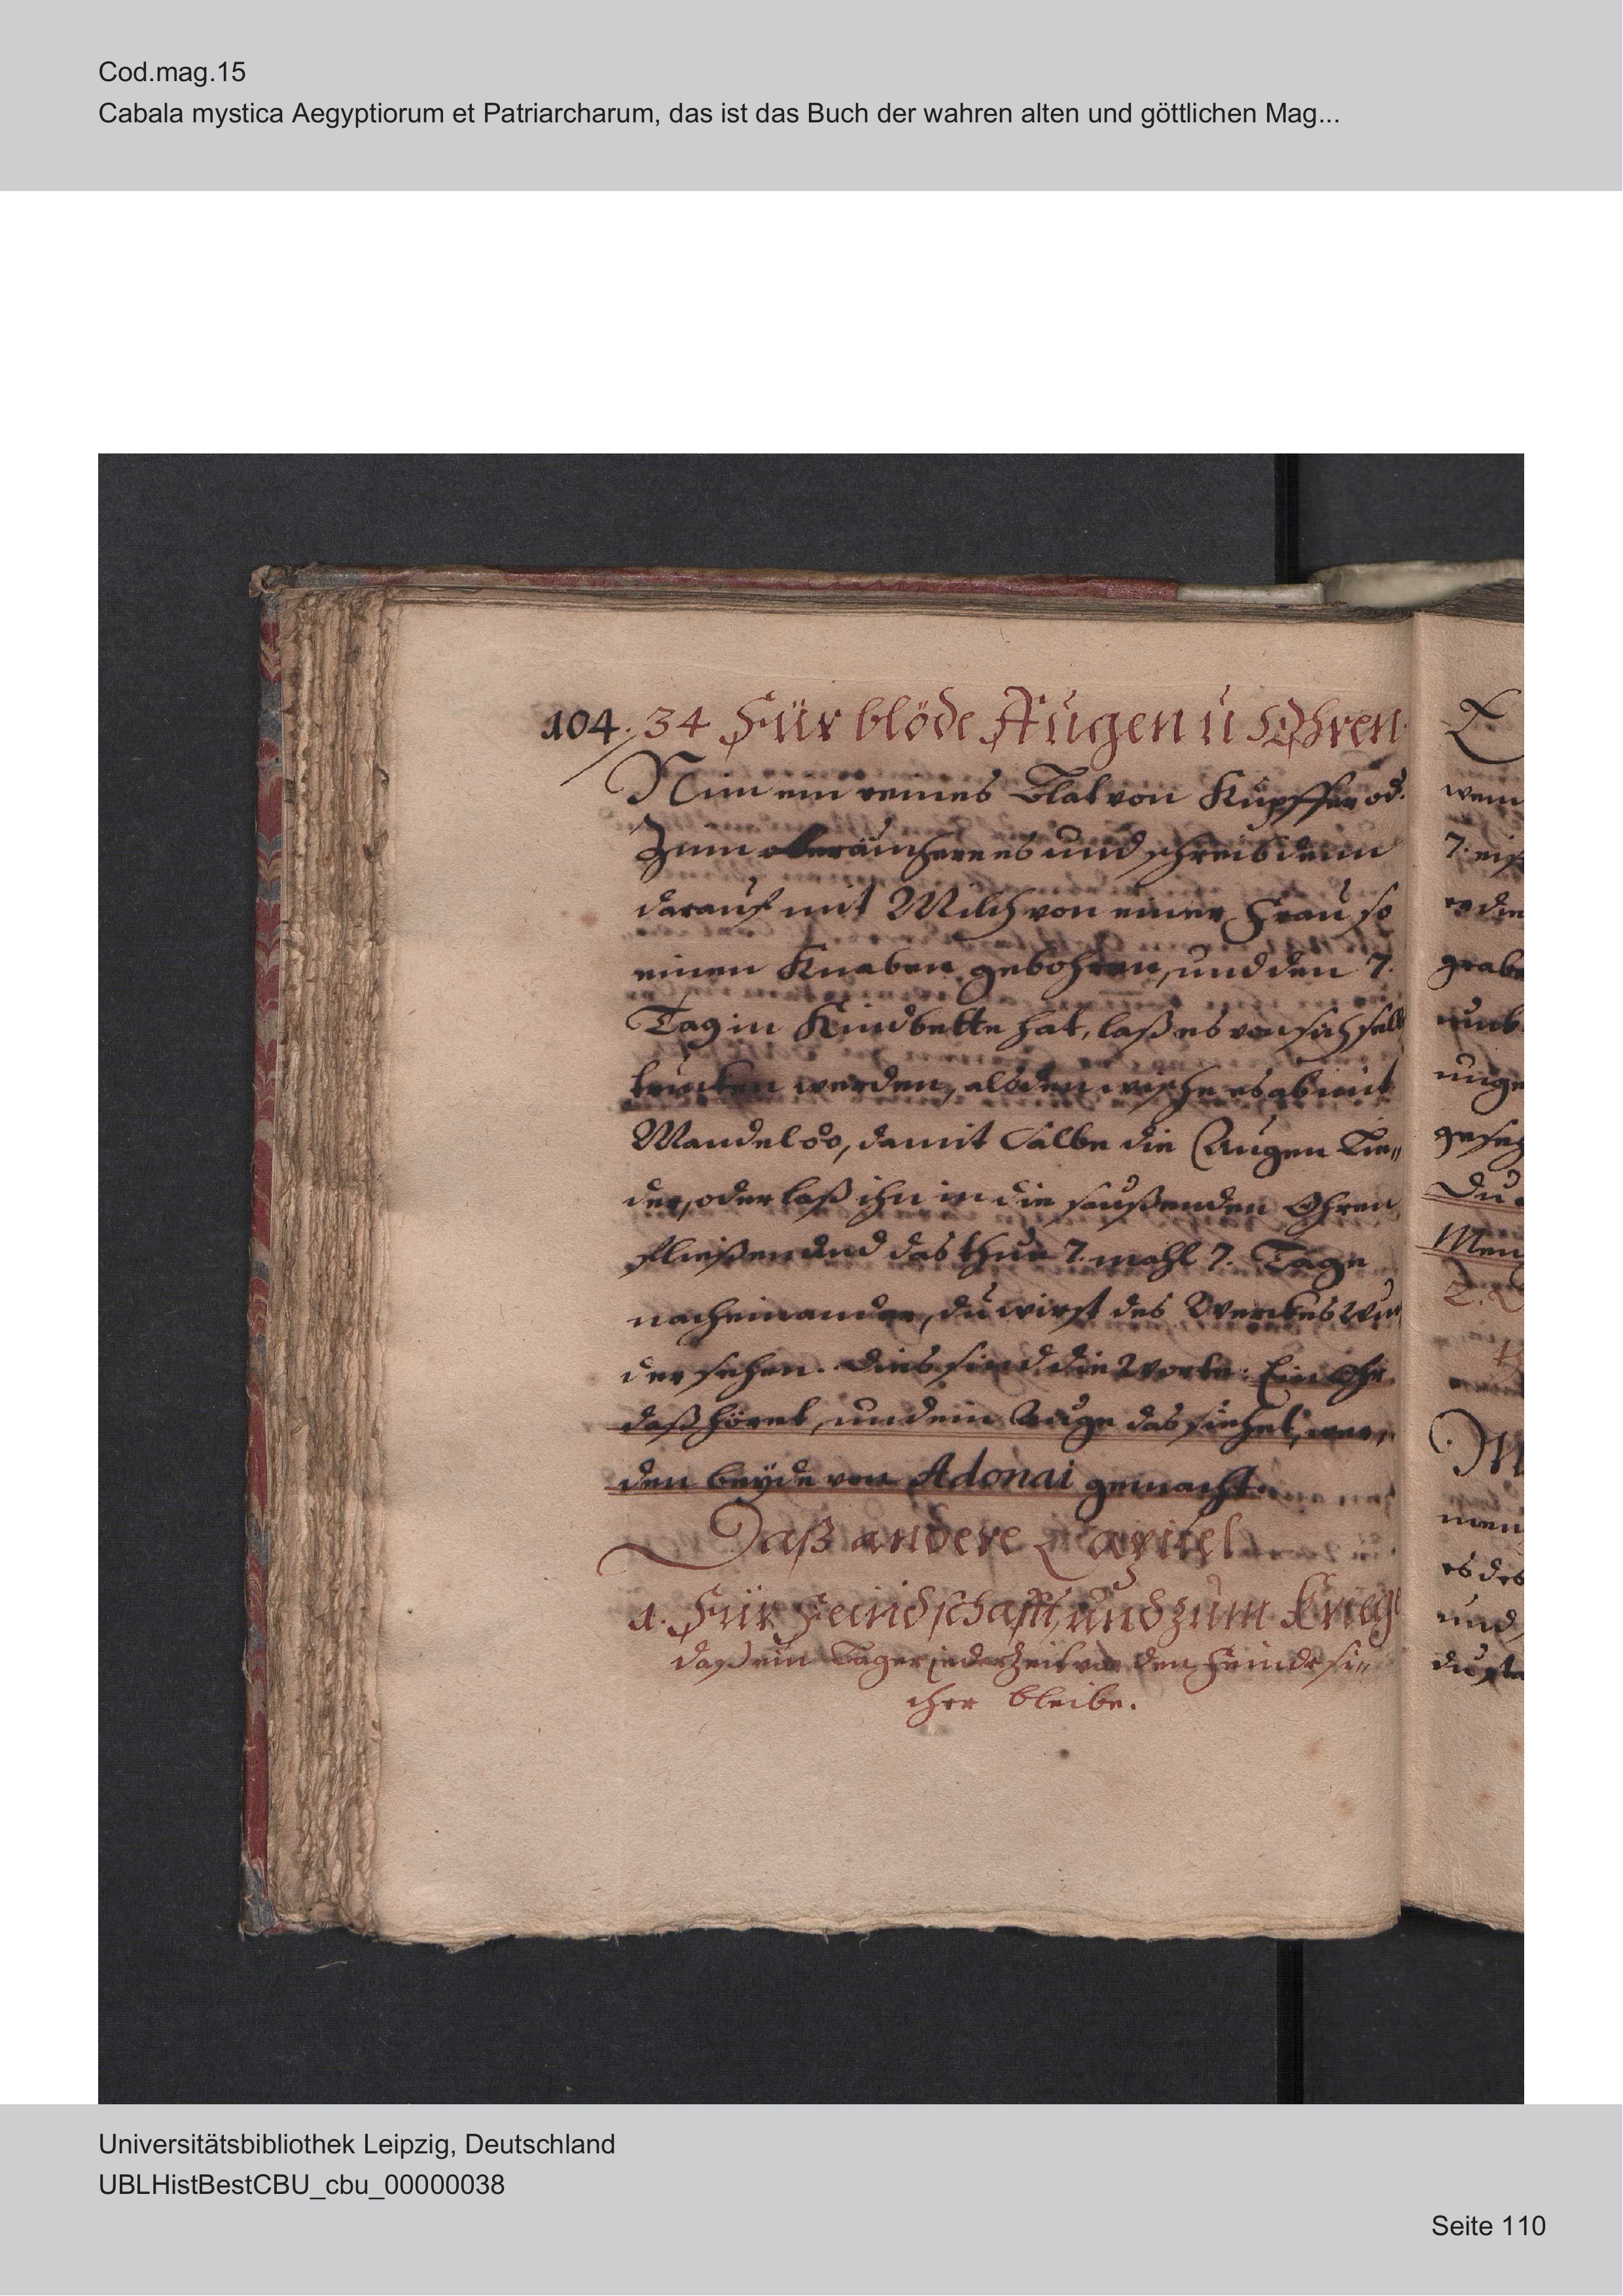 Cod.mag.15
Cabala mystica Aegyptiorum et Patriarcharum, das ist das Buch der wahren alten und göttlichen Mag...
104. 34 Für blöde Augen ü Ohren
Nim ein reines Blat von Kupffer od.
Zinn räuchere es und schreib denn
darauf mit Milch von einer Frau so
einen Knaben gebohren, und den 7.
Tag in Kindbette hat, laß es von sich selb
trucken werden, alsden wische es ab mit
Mandelöo, damit Salbe die Augen Lie„
der, oder laß ihn in die saußenden Ohren
fließen und das thue 7. mahl 7. Tage
nacheinander, du wirst des Werckes Wun
der sehen. Dies sind die Worte: Ein Ohr
daß höret, und ein Auge das siehet, wer„
den beÿde von Adonai gemacht.
Daß andere Capitel
1. Für Feindschafft, und zum Krieg
daß ein Lager jederzeit von den Feinde si„
cher bleibe.
wenn
7.
grabe
Du
Men
2.
M
men
es des
und
Universitätsbibliothek Leipzig, Deutschland
UBLHistBestCBU_cbu_00000038
Seite 110